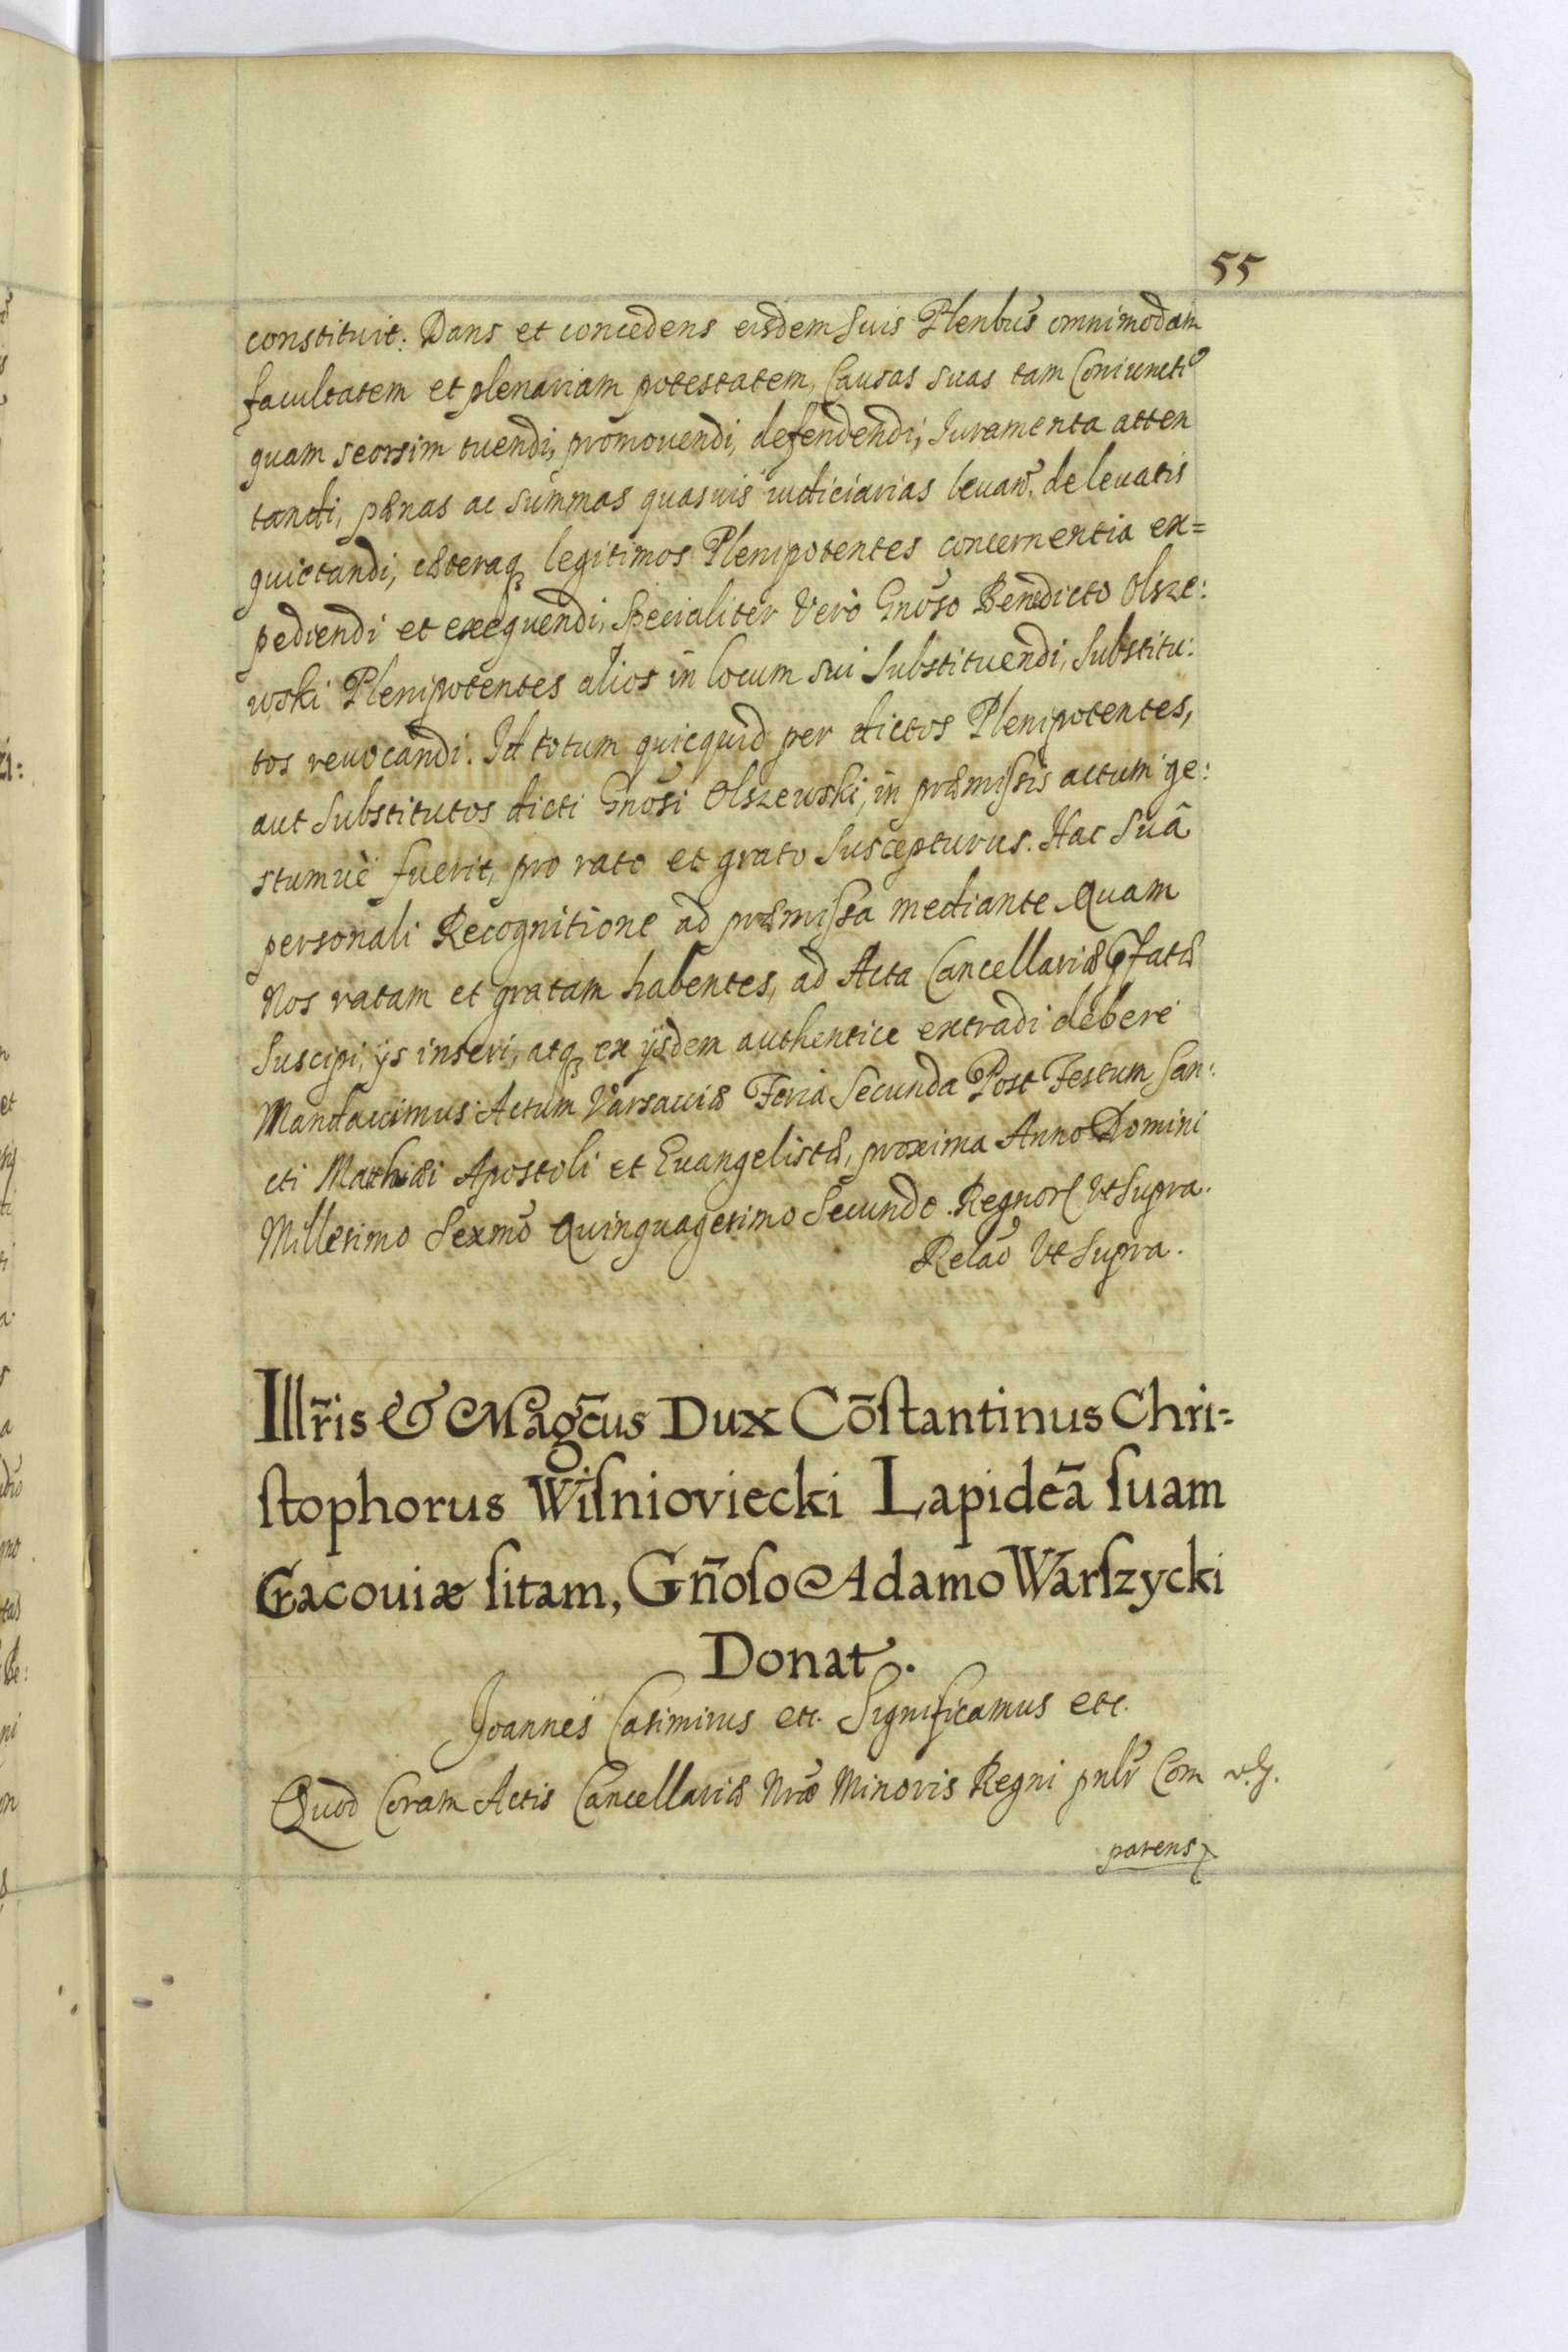 55
constituit. Dans et concedens eisdem suis Plenbus omnimodam
facultatem et plenariam potestatem, Causas suas tam Coniunctĩ
quam seorsim tuendi, promouendi, defendendi, Iuramenta atten
tandi, pænas ac summas quasuis iudiciarias leuan̄. de leuatis
quietandi, cæteraq legitimos Plenipotentes concernentia ex=
pediendi et exequendi, Specialiter Verò Gnoso Benedicto Olsze:
wski Plenipotentes alios in locum sui Substituendi, Substitu:
tos reuocandi. Id totum quicquid per dictos Plenipotentes,
aut Substitutos dicti Gnosi Olszewski, in præmissis actum ge:
stumuè fuerit, pro rato et grato Suscepturus. Hac Suâ
personali Recognitione ad præmissa mediante. Quam
Nos ratam et gratam habentes, ad Acta Cancellariæ pfatæ
Suscipi, ijs inseri, atq ex ijsdem authentice extradi debere
Mandauimus. Actum Varsauiæ Feria Secunda Post Festum San:
cti Mathæi Apostoli et Euangelistæ, proxima Anno Domini
Millesimo Sexmo Quinquagesimo Secundo. Regnor Vt Supra.
Relaõ Vt Supra.
Illr̃is & Magc̃us Dux Cõstantinus Chri=
stophorus Wisnioviecki Lapideã suam
Cracouiæ sitam, Gñoso Adamo Warszycki
Donat.
Joannes Casimirus etc. Significamus etc.
Quod Coram Actis Cancellariæ Nræ Minoris Regni pnlr Com
parens